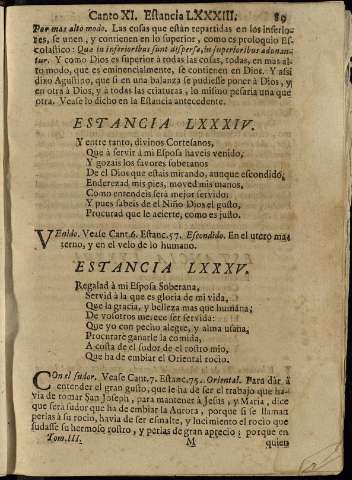 Canto XI. Estancia LXXXIII. 89
Por mas alto modo. Las cosas que están repartidas en los inferio-
res, se unen, y contienen en lo superior, como es prologuio Es-
colastico: Quæ in inferioribus sunt dispersa, in superioribus adonan-
tur. Y como Dios es superior à todas las cosas, todas, en mas al-
to modo, que es eminencialmente, se contienen en Dios. Y assi
dixo Agustino, que si en una balanza se pudiesse poner à Dios, y
en otra à Dios, y à todas las criaturas, lo mismo pesaria una que
otra. Vease lo dicho en la Estancia antecedente.
ESTANCIA LXXXIV.
Y entre tanto, divinos Cortesanos,
Que à servir à mi Esposa haveis venido,
Y gozais los favores soberanos
De el Dios que estais mirando, aunque escondido,
Enderezad mis pies, moved mis manos,
Como entendeis será mejor servido:
Y pues sabeis de el Niño Dios el gusto,
Procurad que le acierte, como es justo.
VEnido. Vease Cant.6. Estanc.57. Escondido. En el utero ma-
terno, y en el velo de lo humano.
ESTANCIA LXXXV.
Regalad à mi Esposa Soberana,
Servid à la que es gloria de mi vida,
Que la gracia, y belleza mas que humana;
De vosotros merece ser servida:
Que yo con pecho alegre, y alma usana,
Procuraré ganarle la comida,
A costa de el sudor de el rostro mio,
Que ha de embiar el Oriental rocio.
COn el sudor. Vease Cant.7. Estanc.75. Oriental. Para dàr à
entender el gran gusto, que le ha de ser el trabajo que ha-
via de tomar San Joseph, para mantener à Jesus, y Maria, dice
que será sudor que ha de embiar la Aurora, porque si se llaman
perlas à su rocio, havia de ser esmalte, y lucimiento el rocio que
sudasse su hermoso rostro, y perlas de gran aprecio; porque en
Tom.III. M quien